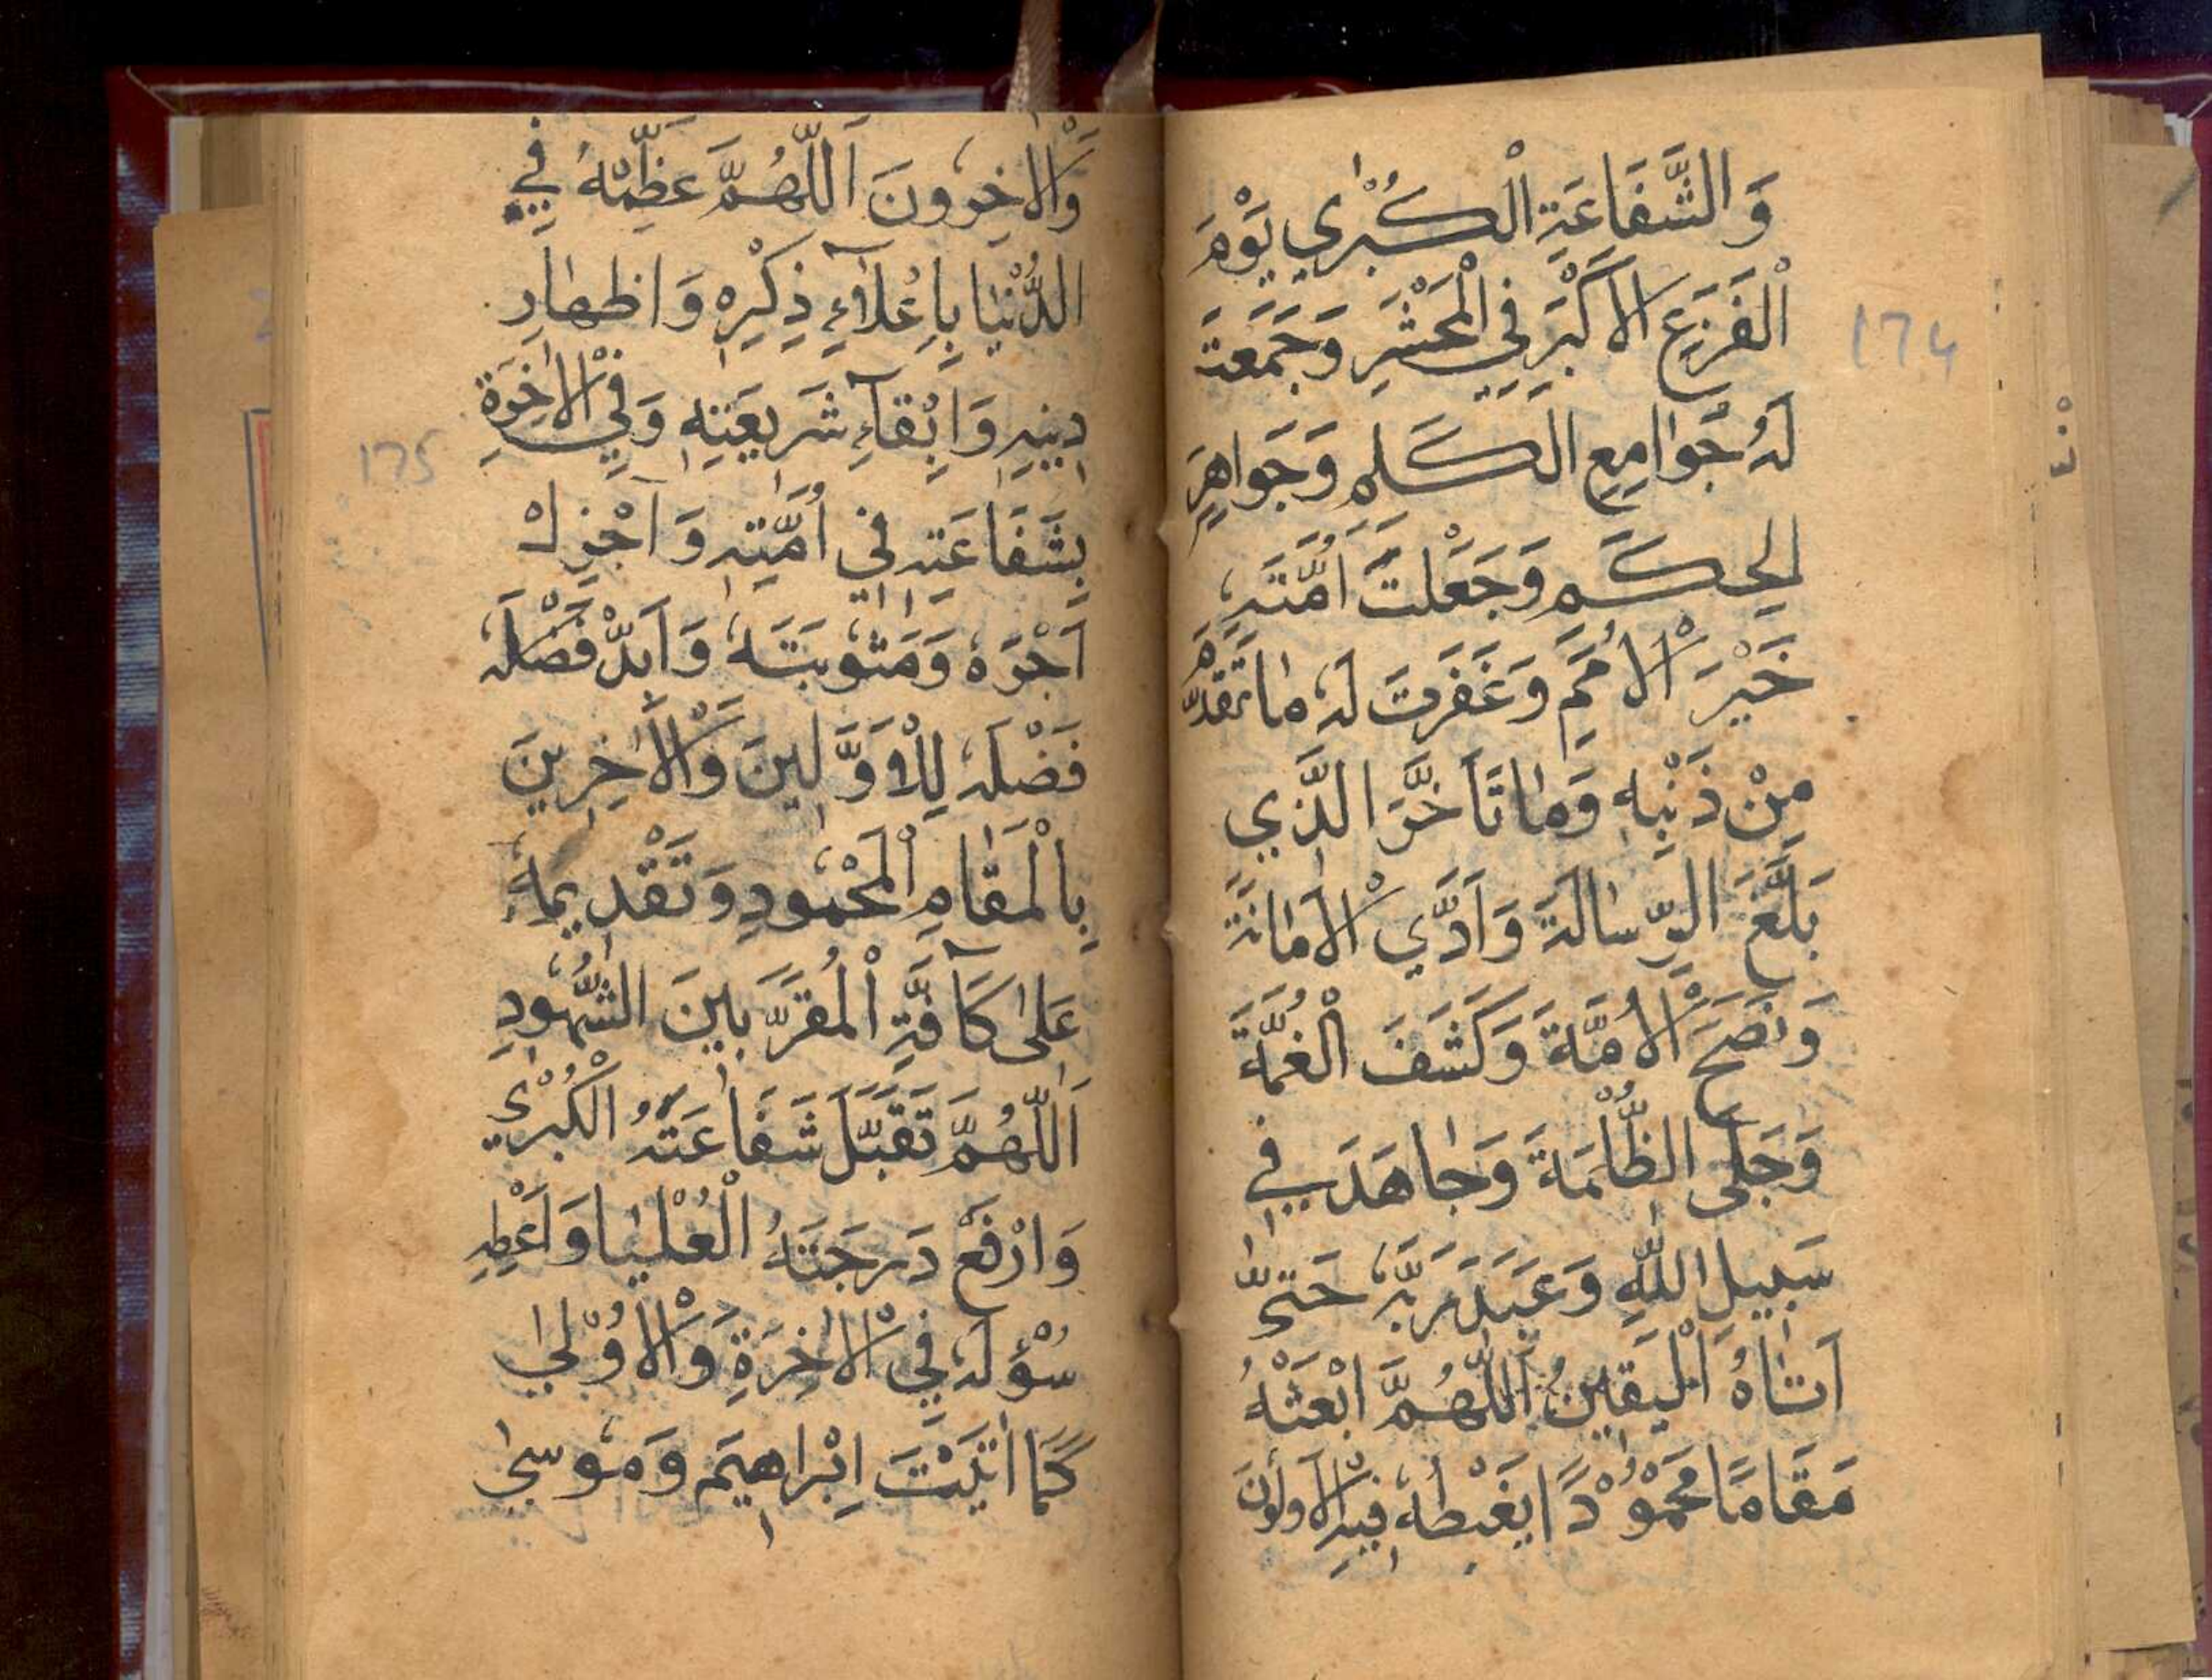 وَالشَّفَاعَةِ الْكُبْرٰي يَوْمَ
الْفَزَعِ الْاَكْبَرِ فِي الْمَحْشَرِ وَجَمَعْتَ
لَهُ جَوَامِعِ الْكَلِمِ وَجَوَاهِرِ
الحِكَمِ وَجَعَلْتَ اُمَّتَهِ
خَيْرَ الْاُمَمِ وَغَفَرتَ لَهُ مٰا تَقَدَّمَ
مِنْ ذَنْبِهِ وَمٰا تَاَخَّرَ الَّذِي
بَلَّغَ الرِّسٰالَةَ وَاَدَّي الْاَمٰانَةَ
وَنَصَحَ الْاُمَّةَ وَكَشَفَ الْغُمَّةَ
وَجَلَى الظُّلْمَةَ وَجٰاهَدَ فِي
سَبِيلِ اللّٰهِ وَعَبَدَ رَبَّهُ حَتّٰى
اَتٰاهُ الْيَقِينُ اَللّٰهُمَّ ابْعَثْهُ
مَقَامًا مَحْمُوْدًا يَغْبِطُهُ فِيهِ الْاَوَّلُونَ
١٦٤
وَالْاٰخِرُونَ اَللّٰهُمَّ عَظِّمْهُ فِي
الدُّنْيٰا بِاِعْلَآءِ ذِكْرِهِ وَاِظهٰارِ
دِينِهِ وَاِبْقَآءِ شَرِيعَتِهِ وَفِي الْاٰخِرَةِ
بِشَفَاعَتِهِ فِي اُمَّتِهِ وَاَجْزِلْ
اَجْرَهُ وَمَثُوبَتَهُ وَاَبَدَّ فَضْلَهُ
فَضْلَهُ لِلْاَوَّلِينَ وَالْاٰخِرِينَ
بِالْمَقٰامِ الْمَحْمُودِ وَتَقْدِيمَهُ
عَلٰى كَآفَّةِ الْمُقَرَّبِينَ الشُّهُودِ
اَللّٰهُمَّ تَقَبَّلْ شَفَاعَتَهُ الْكُبْرٰى
وَارْفَعْ دَرَجَتَهُ الْعُلْيٰا وَاَعْطِهِ
سُؤْلَهُ فِي الْاٰخِرَةِ وَالْاُوْلٰي
كَمَا اٰتَيْتَ اِبْرٰاهِيمَ وَمُوسٰى
١٦٥